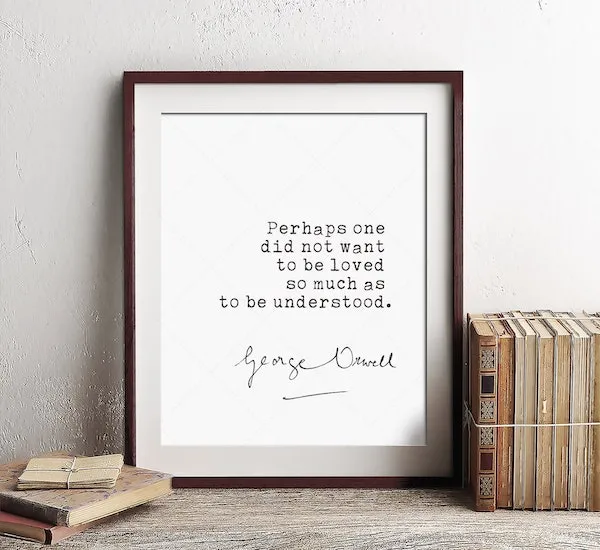 Perhaps one
did not want
to be loved
so much as
to be understood.
George Orwell